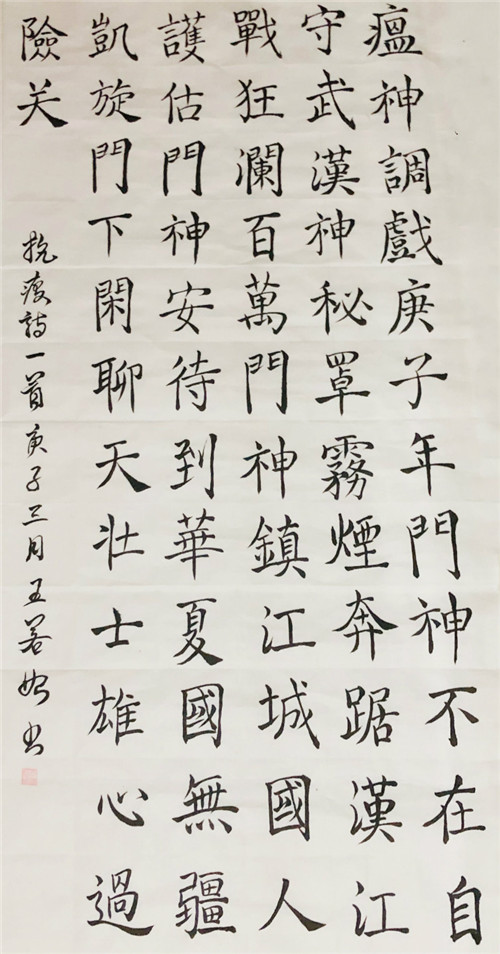 瘟神調戲庚子年門神不在自
守武漢神秘罩霧煙奔踞漢江
戰狂瀾百萬門神鎮江城國人
護估門神安待到華夏國無疆
凱旋門下閑聊天壯士雄心過
險关
抗疫詩一首庚子三月王若书